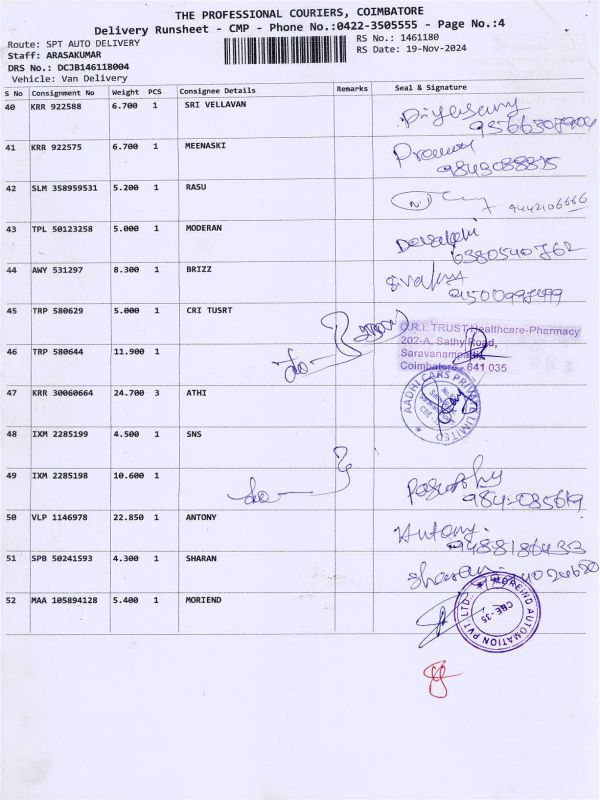 THE PROFESSIONAL COURIERS, COIMBATORE
Delivery Runsheet - CMP - Phone No.:0422-3505555 - Page No.:4
Route: SPT AUTO DELIVERY RS No.: 1461180
Staff: ARASAKUMAR RS Date: 19-Nov-2024
DRS No.: DCJB146118004
Vehicle: Van Delivery
S No Consignment No Weight PCS Consignee Details Remarks Seal & Signature
40 KRR 922588 6.700 1 SRI VELLAVAN
41 KRR 922575 6.700 1 MEENASKI
42 SLM 358959531 5.200 1 RASU
9442106666
43 TPL 50123258 5.000 1 MODERAN
6380540762
44 AWY 531297 8.300 1 BRIZZ
45 TRP 580629 5.000 1 CRI TUSRT
C.R.I. TRUST Healthcare-Pharmacy
202-A, Sathy Road,
46 TRP 580644 11.900 1
Coimbatore - 641 035
47 KRR 30060664 24.700 3 ATHI
AADHI CARS PRIVATE LIMITED
48 IXM 2285199 4.500 1 SNS
49 IXM 2285198 10.600 1
50 VLP 1146978 22.850 1 ANTONY
Antony
9488186433
51 SPB 50241593 4.300 1 SHARAN
Sharan
52 MAA 105894128 5.400 1 MORIEND
AUTOMATION PVT. LTD.
CBE-35